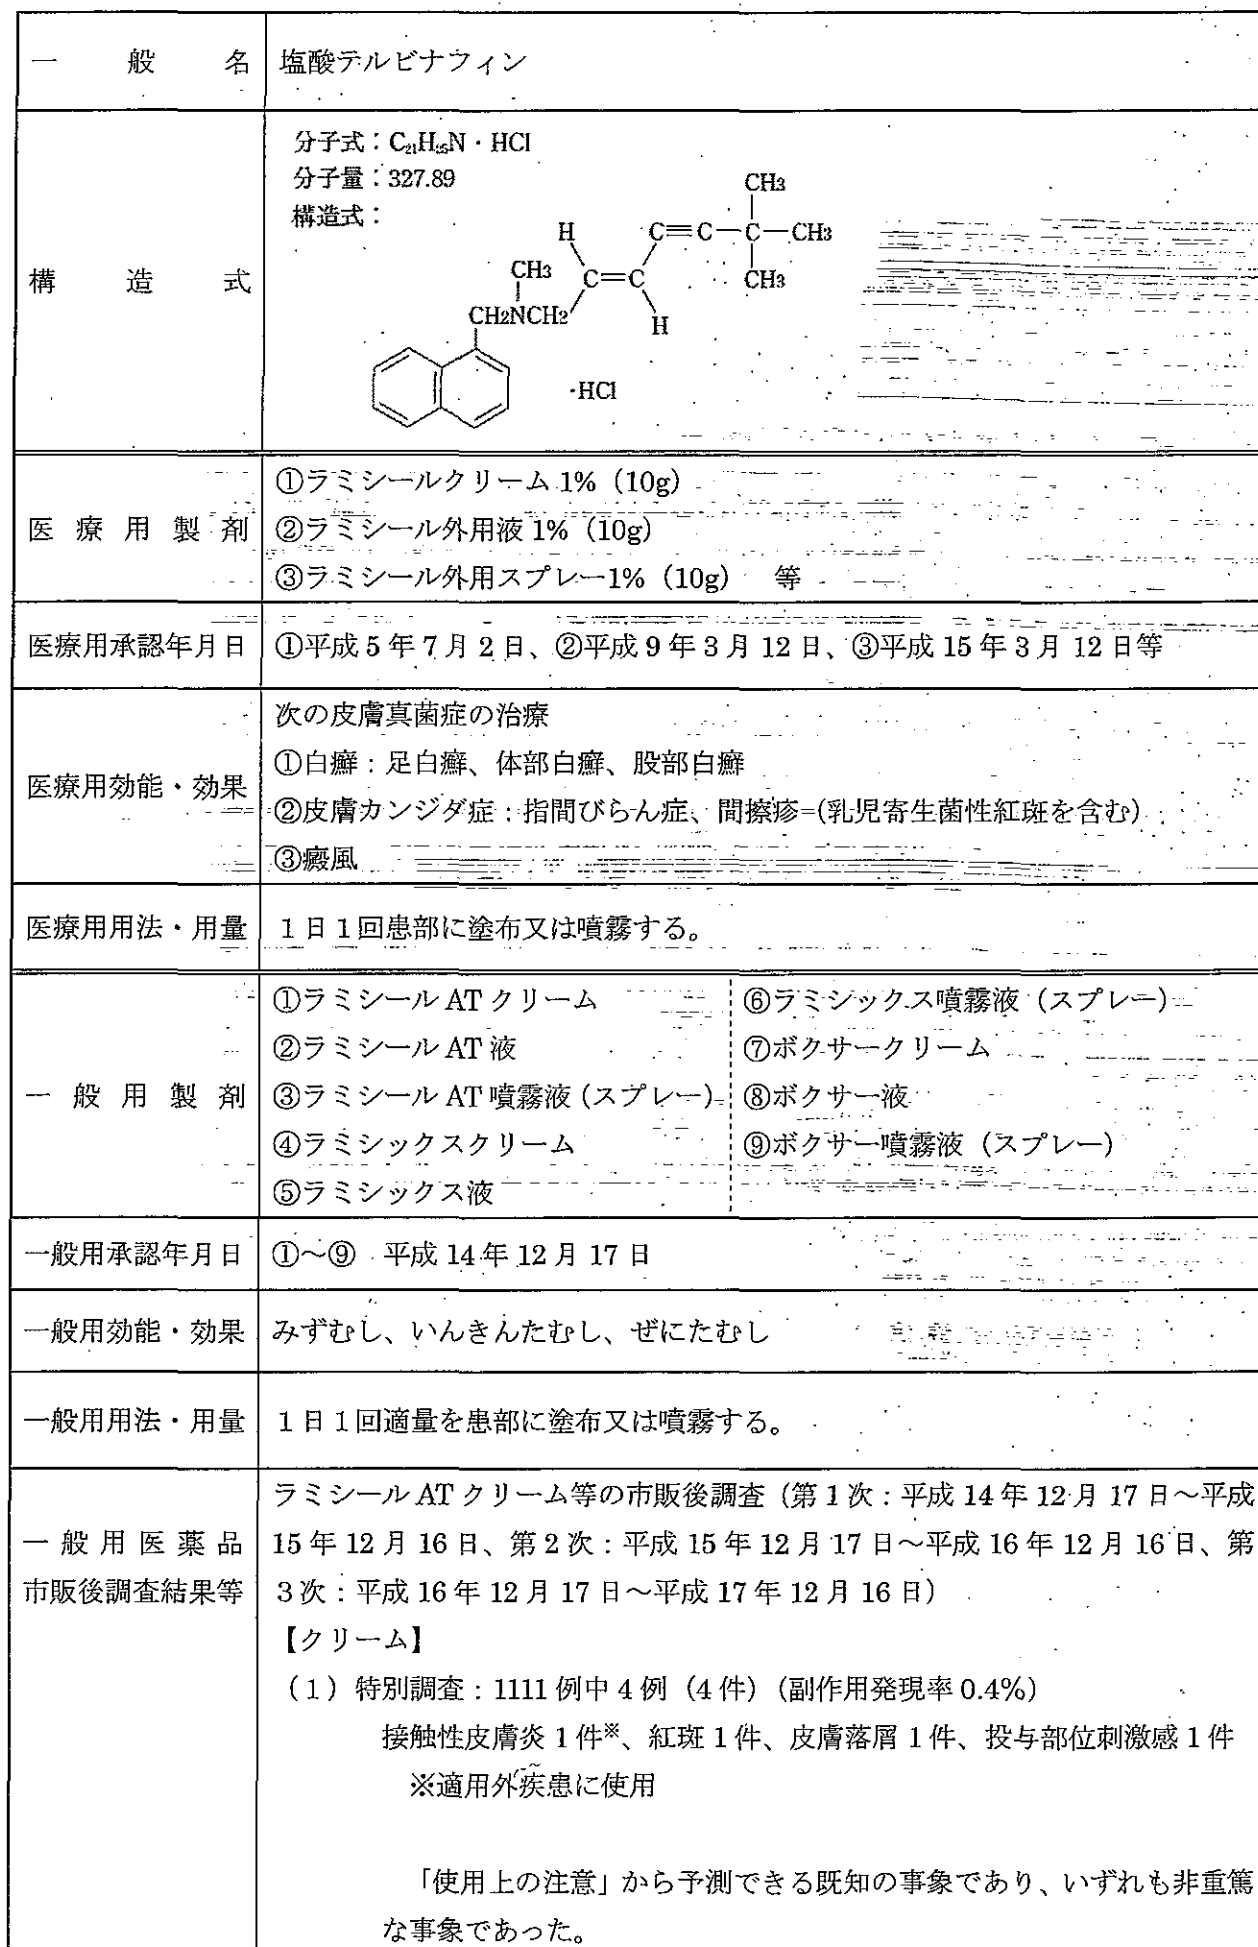 一般名 塩酸テルビナフィン
分子式：C₂₁H₂₅N・HCl
分子量：327.89
構造式：
構造式
CH3
H C≡C－C－CH3
CH3 C＝C CH3
CH2NCH2 H
・HCl
医療用製剤
①ラミシールクリーム 1%（10g）
②ラミシール外用液 1%（10g）
③ラミシール外用スプレー1%（10g） 等
医療用承認年月日 ①平成 5 年 7 月 2 日、②平成 9 年 3 月 12 日、③平成 15 年 3 月 12 日等
医療用効能・効果
次の皮膚真菌症の治療
①白癬：足白癬、体部白癬、股部白癬
②皮膚カンジダ症：指間びらん症、間擦疹（乳児寄生菌性紅斑を含む）
③癜風
医療用用法・用量 １日１回患部に塗布又は噴霧する。
一般用製剤
①ラミシール AT クリーム
②ラミシール AT 液
③ラミシール AT 噴霧液（スプレー）
④ラミシックスクリーム
⑤ラミシックス液
⑥ラミシックス噴霧液（スプレー）
⑦ボクサークリーム
⑧ボクサー液
⑨ボクサー噴霧液（スプレー）
一般用承認年月日 ①～⑨ 平成 14 年 12 月 17 日
一般用効能・効果 みずむし、いんきんたむし、ぜにたむし
一般用用法・用量 １日１回適量を患部に塗布又は噴霧する。
一般用医薬品
市販後調査結果等
ラミシール AT クリーム等の市販後調査（第１次：平成 14 年 12 月 17 日～平成
15 年 12 月 16 日、第２次：平成 15 年 12 月 17 日～平成 16 年 12 月 16 日、第
３次：平成 16 年 12 月 17 日～平成 17 年 12 月 16 日）
【クリーム】
（１）特別調査：1111 例中 4 例（4 件）（副作用発現率 0.4%）
接触性皮膚炎 1 件※、紅斑 1 件、皮膚落屑 1 件、投与部位刺激感 1 件
※適用外疾患に使用
「使用上の注意」から予測できる既知の事象であり、いずれも非重篤
な事象であった。